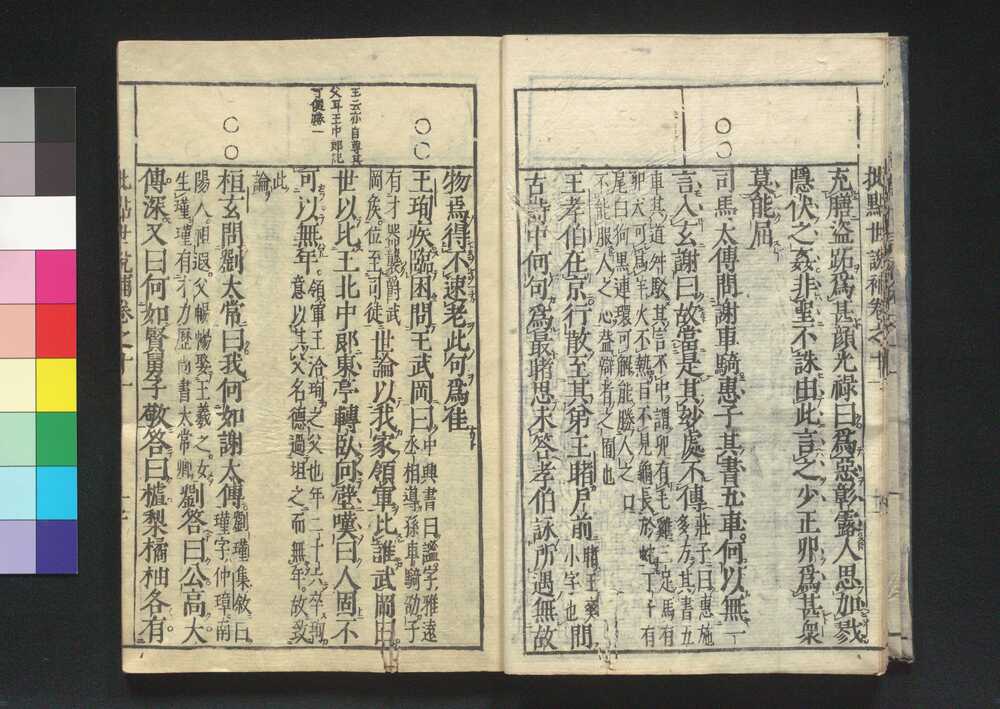 批點世說補卷之十
充膳盜跖爲甚顏光祿曰爲惡彰露人思加戮
隱伏之姦非聖不誅由此言之少正卯爲甚衆
莫能屈
司馬太傅問謝車騎惠子其書五車何以無一
言入玄謝曰故當是其妙處不傳莊子曰惠施多方其書五
車其道舛駁其言不中謂卵有毛雞三足馬有
卵犬可爲羊火不熱目不見龜長於蛇丁子有
尾白狗黑連環可解能勝人之口
不能服人之心蓋辯者之囿也
王孝伯在京行散至其弟王睹戶前睹王爽小字也問
古詩中何句爲最睹思未答孝伯詠所遇無故
物焉得不速老此句爲佳
王珣疾臨困問王武岡曰中興書曰謐字雅遠丞相導孫車騎劭子
有才器襲爵武岡矦位至司徒世論以我家領軍比誰武岡曰
世以比王北中郎東亭轉臥向壁嘆曰人固不
可以無年領軍王洽珣之父也年二十六卒珣意以其父名德過坦之而無年故致
此論
桓玄問劉太常曰我何如謝太傅劉瑾集敘曰瑾字仲璋南
陽人祖遐父暢暢娶王羲之女生瑾瑾有才力歷尚書太常卿劉答曰公高太
傅深又曰何如賢舅子敬答曰樝梨橘柚各有
批點世說補卷之十
王云亦自尊其
父耳王中郎